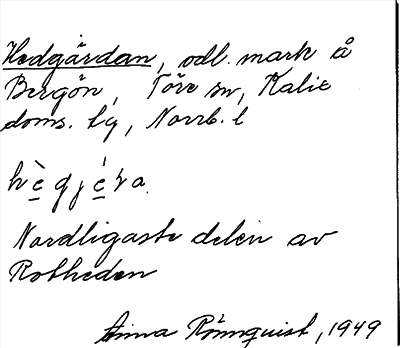 Hedgärdan, odl. mark å
Bergön, Töre sn, Kalix
doms. lg, Norrb. l
hè̱gjé̱ra.
Nordligaste delen av
Rotheden
Anna Rönnquist, 1949